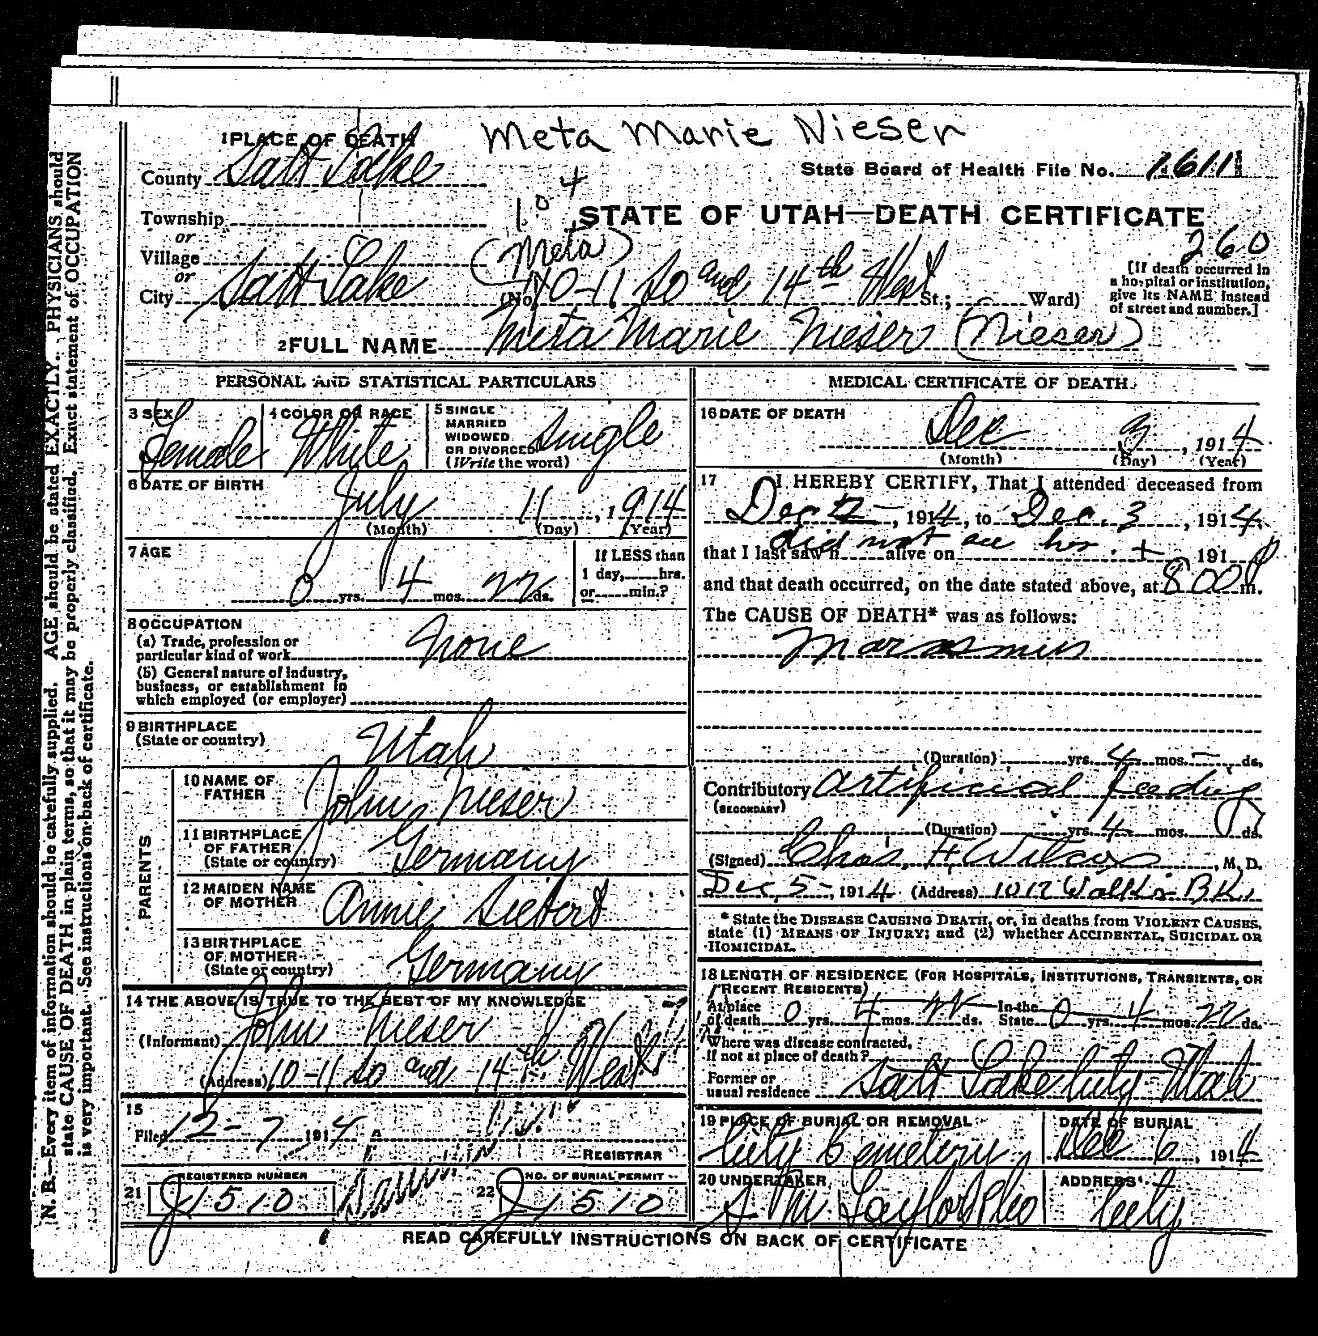 Meta Marie Nieser
1 PLACE OF DEATH
County Salt Lake
State Board of Health File No. 1611
104
Township
or
STATE OF UTAH—DEATH CERTIFICATE
Village
or
(Meta)
260
City Salt Lake (No. 10-11 So and 14th West St.; Ward)
[If death occurred in a hospital or institution, give its NAME instead of street and number.]
2 FULL NAME Meta Marie Nieser (Nieser)
PERSONAL AND STATISTICAL PARTICULARS
3 SEX Female
4 COLOR OR RACE White
5 SINGLE MARRIED WIDOWED OR DIVORCED (Write the word) Single
6 DATE OF BIRTH
July 11, 1914
(Month) (Day) (Year)
7 AGE
0 yrs. 4 mos. 22 ds.
If LESS than 1 day, hrs. or min.?
8 OCCUPATION
(a) Trade, profession or particular kind of work None
(b) General nature of industry, business, or establishment in which employed (or employer)
9 BIRTHPLACE (State or country) Utah
PARENTS
10 NAME OF FATHER John Nieser
11 BIRTHPLACE OF FATHER (State or country) Germany
12 MAIDEN NAME OF MOTHER Annie Siebert
13 BIRTHPLACE OF MOTHER (State or country) Germany
14 THE ABOVE IS TRUE TO THE BEST OF MY KNOWLEDGE
(Informant) John Nieser
(Address) 10-11 So and 14th West
15
Filed 12-7 1914
REGISTRAR
21 REGISTERED NUMBER J1510
22 NO. OF BURIAL PERMIT J1510
MEDICAL CERTIFICATE OF DEATH
16 DATE OF DEATH
Dec 3, 1914
(Month) (Day) (Year)
17 I HEREBY CERTIFY, That I attended deceased from
Dec 2, 1914, to Dec. 3, 1914
did not see her
that I last saw h alive on 191
and that death occurred, on the date stated above, at 8 00 P m.
The CAUSE OF DEATH* was as follows:
Marasmus
(Duration) yrs. 4 mos. ds.
Contributory Artificial feeding
(SECONDARY)
(Duration) yrs. 4 mos. ds.
(Signed) Chas. F Wilcox, M. D.
Dec 5 - 1914 (Address) 1012 Walker Bk
* State the DISEASE CAUSING DEATH, or, in deaths from VIOLENT CAUSES, state (1) MEANS OF INJURY; and (2) whether ACCIDENTAL, SUICIDAL OR HOMICIDAL.
18 LENGTH OF RESIDENCE (FOR HOSPITALS, INSTITUTIONS, TRANSIENTS, OR RECENT RESIDENTS)
At place of death 0 yrs. 4 mos. 22 ds. In the State 0 yrs. 4 mos. 22 ds.
Where was disease contracted, if not at place of death?
Former or usual residence Salt Lake City Utah
19 PLACE OF BURIAL OR REMOVAL City Cemetery
DATE OF BURIAL Dec 6, 1914
20 UNDERTAKER S M Taylor &Co
ADDRESS City
READ CAREFULLY INSTRUCTIONS ON BACK OF CERTIFICATE
N. B.—Every item of information should be carefully supplied. AGE should be stated EXACTLY. PHYSICIANS should
state CAUSE OF DEATH in plain terms, so that it may be properly classified. Exact statement of OCCUPATION
is very important. See instructions on back of certificate.